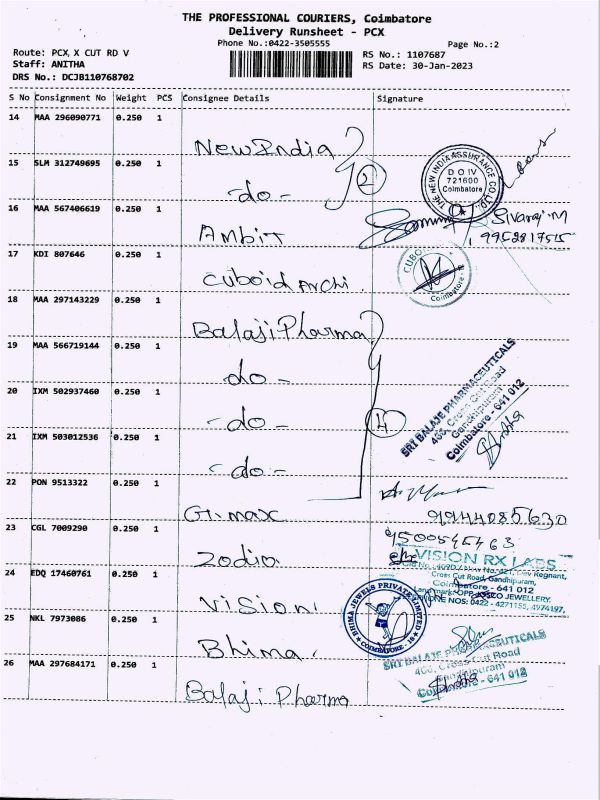 THE PROFESSIONAL COURIERS, Coimbatore
Delivery Runsheet - PCX
Phone No.:0422-3505555
Page No.:2
Route: PCX, X CUT RD V
Staff: ANITHA
DRS No.: DCJB110768702
RS No.: 1107687
RS Date: 30-Jan-2023
S No Consignment No Weight PCS Consignee Details Signature
14 MAA 296090771 0.250 1
New India
15 SLM 312749695 0.250 1
-do-
2
THE NEW INDIA ASSURANCE CO. LTD.
D O IV
721600
Coimbatore
16 MAA 567406619 0.250 1
Ambit
Sivaraj.M
9952817515
17 KDI 807646 0.250 1
Cuboid Archi.
CUBO
Coimbatore
18 MAA 297143229 0.250 1
Balaji Pharma
19 MAA 566719144 0.250 1
-do-
20 IXM 502937460 0.250 1
-do-
4
21 IXM 503012536 0.250 1
-do-
SRI BALAJE PHARMACEUTICALS
466, Cross Cut Road
Gandhipuram
Coimbatore - 641 012
22 PON 9513322 0.250 1
G.max
9944085630
23 CGL 7009290 0.250 1
Zodia
9500545463
24 EDQ 17460761 0.250 1
Vision
VISION RX LABS
Cross Cut Road, Gandhipuram,
Coimbatore - 641 012
PHONE NOS: 0422 - 4271155, 4974197,
25 NKL 7973086 0.250 1
Bhima.
BHIMA JEWELS PRIVATE LIMITED
COIMBATORE - 16
26 MAA 297684171 0.250 1
Balaji Pharma
SRI BALAJE PHARMACEUTICALS
466, Cross Cut Road
Gandhipuram
Coimbatore - 641 012